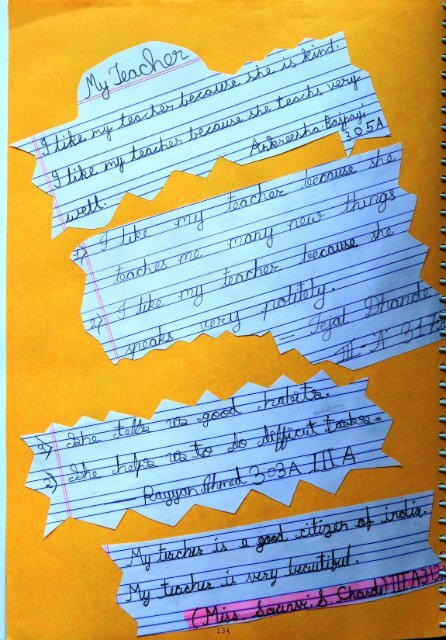 My Teacher
I like my teacher because she is kind.
I like my teacher because she teachs very
well.
Ankreesha Bajpayi
305A
1) I like my teacher because she
teaches me many new things
2) I like my teacher because she
speaks very politely.
— Tejal Dhande
III - A
1) She tells us good habits.
2) She helps us to do difficult tasks.
— Rayyan Ahmed 303A III A
My teacher is a good citizen of india.
My teacher is very beautiful.
(Miss S. Charde) III A
134